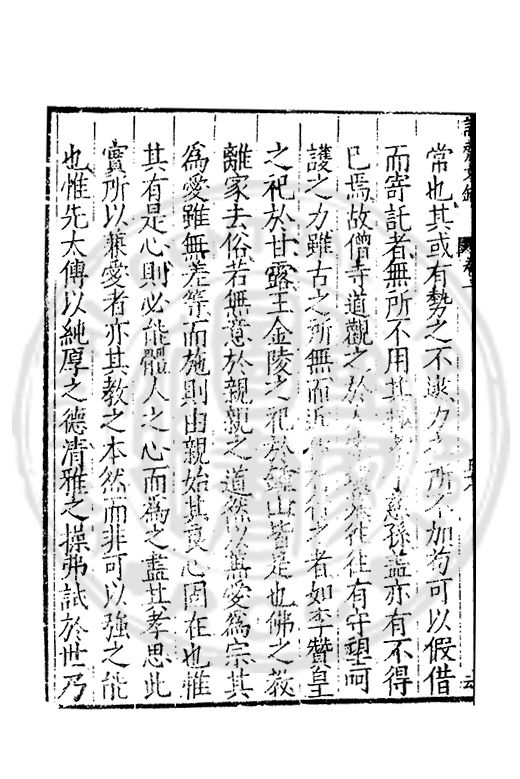 常也其或有勢之不逮力之所不加苟可以假借
而寄託者無所不用其 孫蓋亦有不得
已焉故僧寺道觀之於 往往有守望呵
護之力雖古之所無而近 有行之者如李贊皇
之祀於甘露王金陵之祀於鍾山皆是也佛之教
離家去俗若無意於親親之道然以兼愛為宗其
為愛雖無差等而施則由親始其良心固在也惟
其有是心則必能體人之心而為之盡其孝思此
實所以兼愛者亦其教之本然而非可以強之能
也惟先太傅以純厚之德清雅之操弗試於世乃